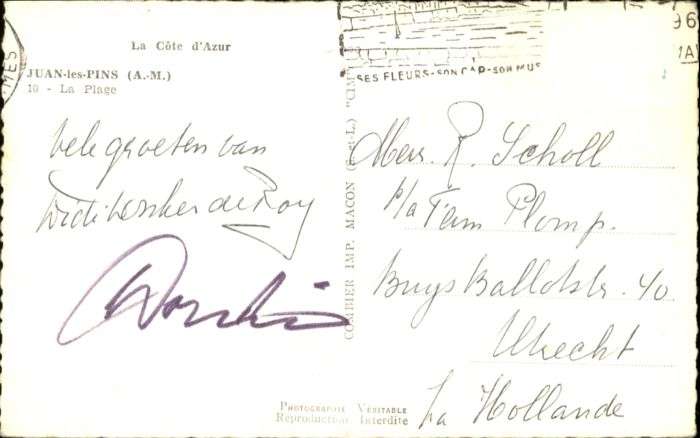 La Côte d'Azur
JUAN-les-PINS (A.-M.)
10 - La Plage
vele groeten van
de Rooy
COMBIER IMP. MACON (S.-et-L.) "CIM"
PHOTOGRAPHIE VÉRITABLE
Reproduction Interdite
SES FLEURS-SON CAP-SON MUS
96
Mevr. R. Scholl
p/a Fam Plomp.
Buys Ballotstr. 40
Utrecht
La Hollande